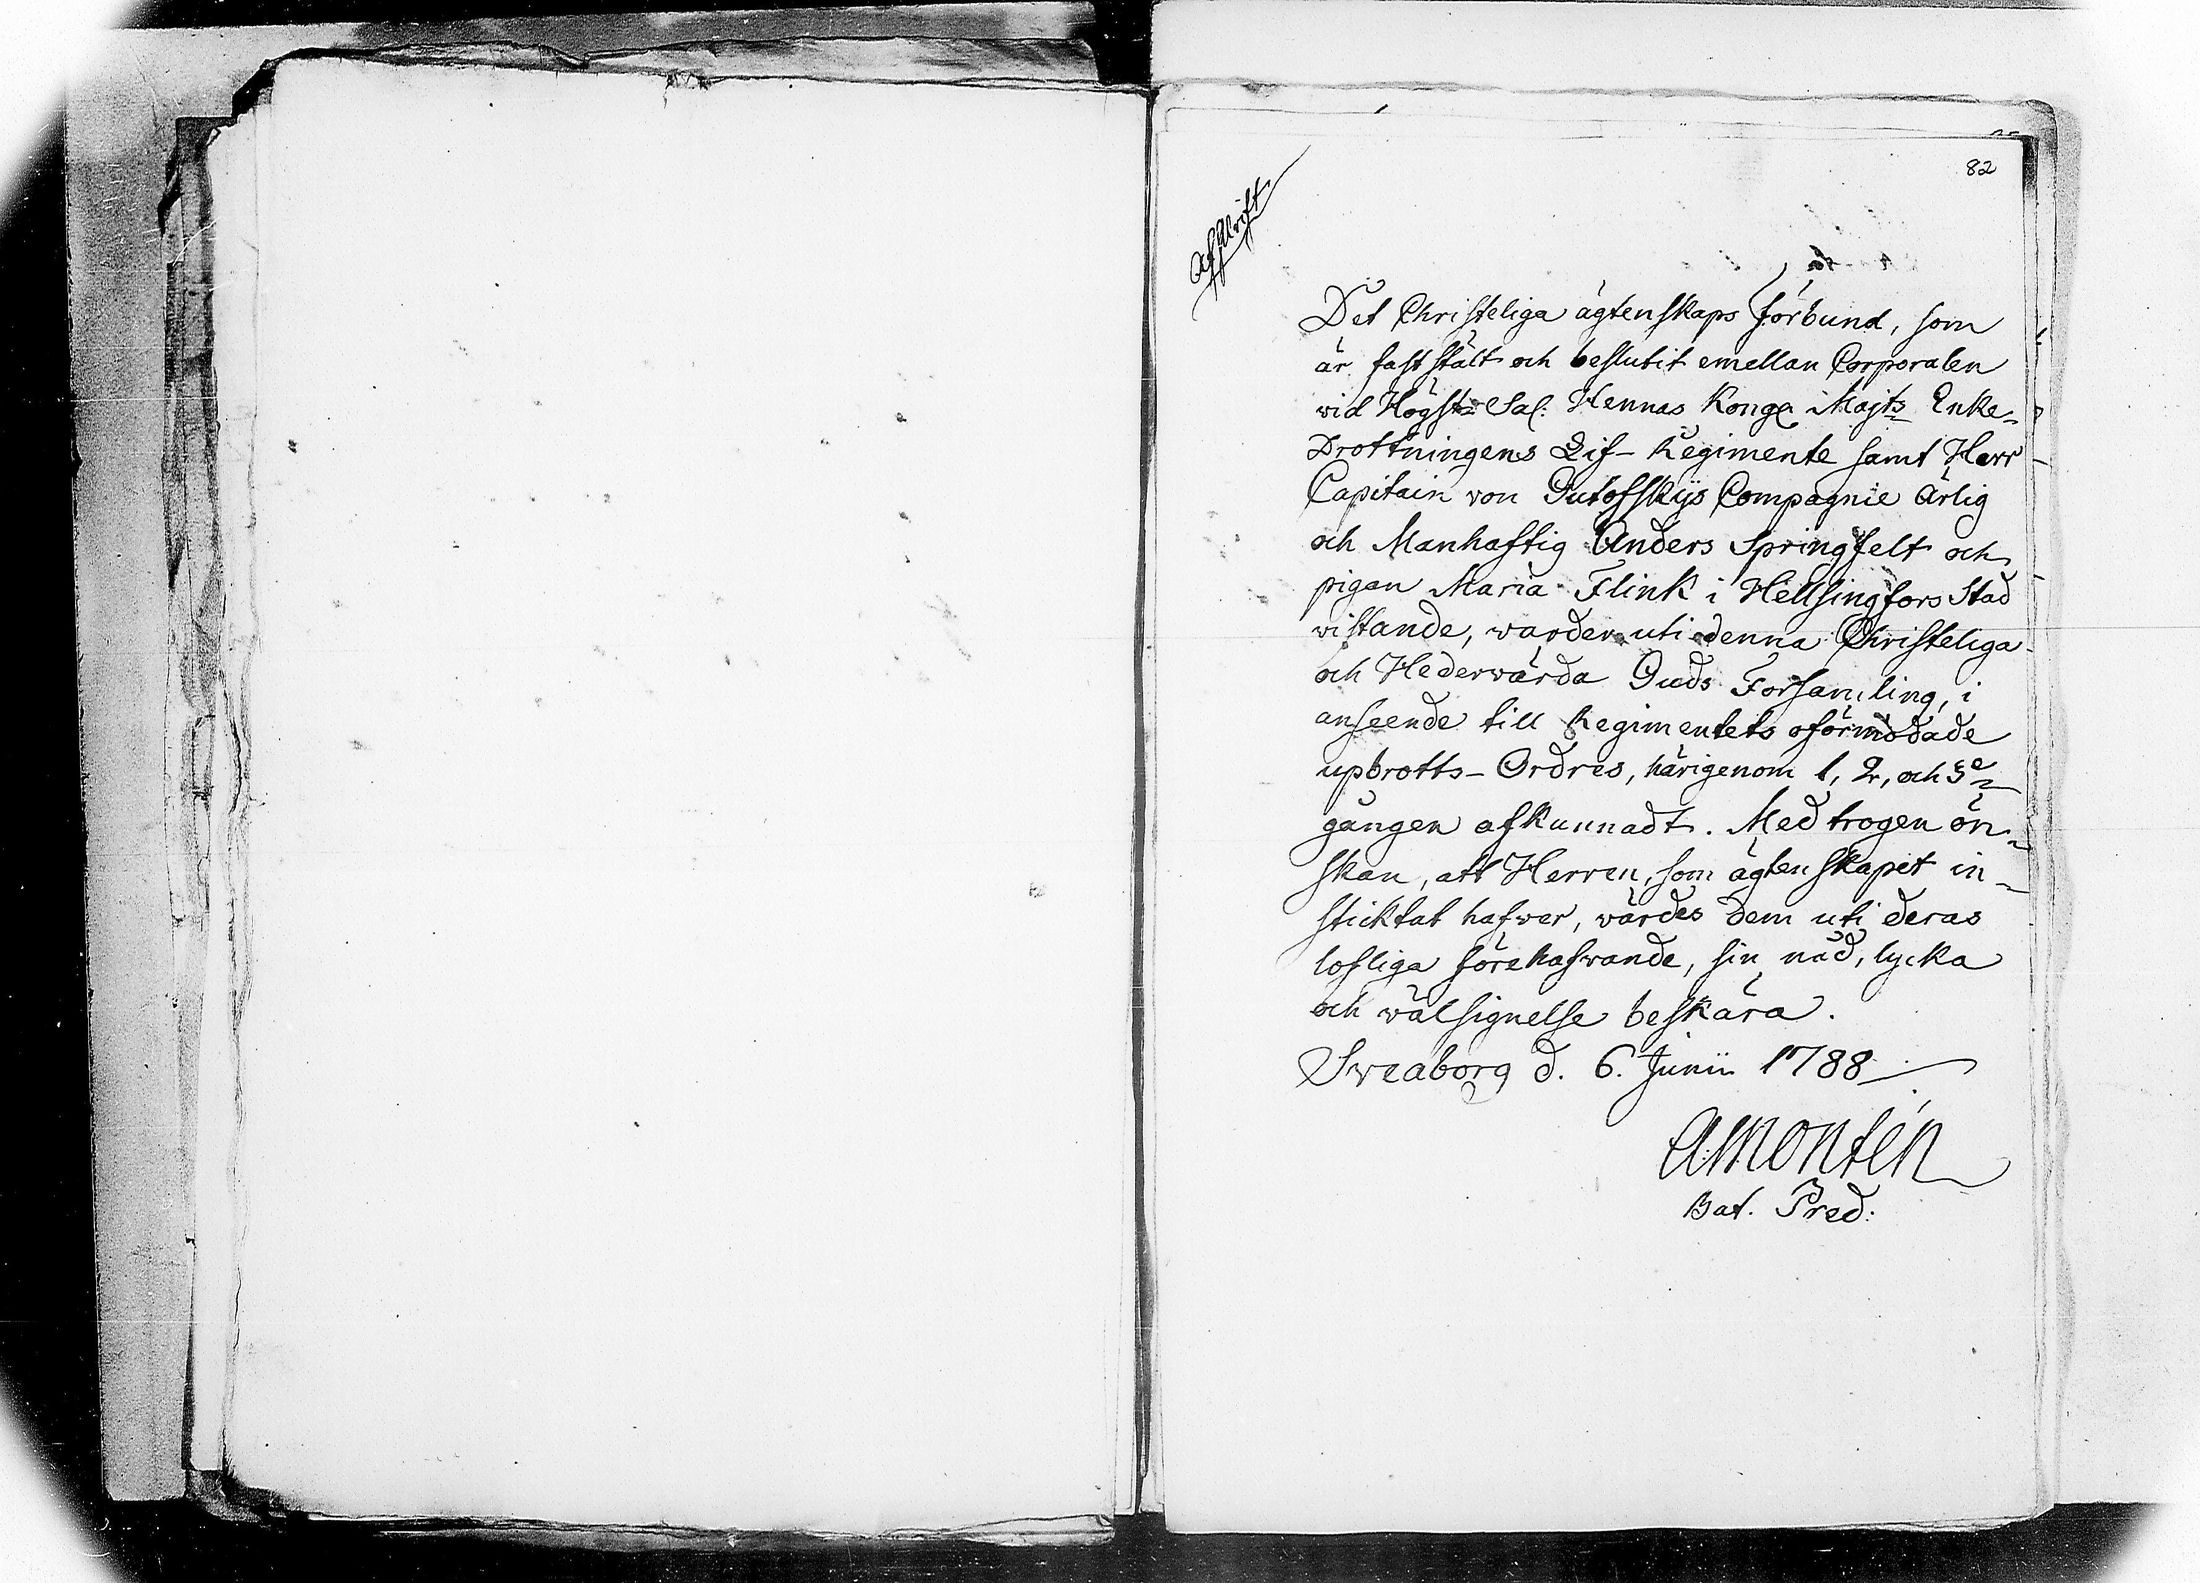 82
Afskrift
Det Christeliga ägtenskaps förbund, som
är faststält och beslutit emellan Corporalen
vid Högst Sal: Hennas Kongl Majts Enke-
Drottningens Lif-Regimente samt Herr
Capitain von Gutofskijs Compagnie Ärlig
och Manhaftig Anders Springfelt och
pigan Maria Flink i Hellsingfors Stad
vistande, warder uti denna Christeliga
och Hedervärda Guds Församling, i
anseende till Regimentets oförmodade
upbrotts-Ordres, härigenom 1, 2, och 3e
gången afkunnadt. Med trogen ön-
skan, att Herren, som ägtenskapet in-
sticktat hafver, värdes dem uti deras
lofliga förehafvande, sin nåd, lycka
och välsignelse beskära.
Sveaborg d. 6. Junii 1788
AMontén
Bat. Pred: